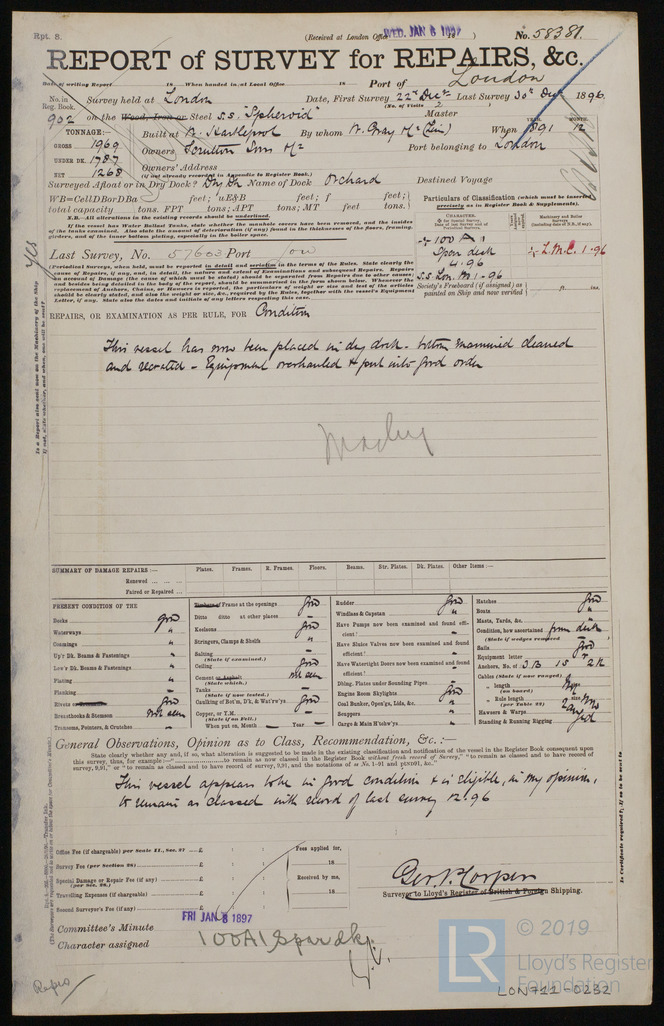 Rpt. 8.
(Received at London Office WED. JAN 6 1897 18 )
No. 58381
REPORT of SURVEY for REPAIRS, &c.
Date of writing Report 18 When handed in at Local Office 18 Port of London
No. in Reg. Book. Survey held at London Date, First Survey 22nd Decr Last Survey 30th Decr 1896
(No. of Visits 2
902 on the Wood, Iron or Steel S.S. "Spheroid" Master
TONNAGE:—
GROSS 1969
UNDER DK. 1787
NET 1268
Built at W. Hartlepool By whom W. Gray & Co (Lim) When 1891 12
YEAR. MONTH.
Owners Scrutton Sons & Co Port belonging to London
Owners' Address
(if not already recorded in Appendix to Register Book.)
Surveyed Afloat or in Dry Dock? Dry Dk Name of Dock Orchard Destined Voyage
WB=CellDBorDBa feet; uE&B feet; f feet;
total capacity tons. FPT tons; APT tons; MT feet tons.
N.B.—All alterations in the existing records should be underlined.
If the vessel has Water Ballast Tanks, state whether the manhole covers have been removed, and the insides of the tanks examined. Also the amount of deterioration (if any) found in the thicknesses of the floors, framing, girders, and of the inner bottom plating, especially in the boiler space.
Particulars of Classification (which must be inserted precisely as in Register Book & Supplements).
100 A 1
Spar deck
4.96
S.S. Lon. No 1-96
L.M.C. 1-96
Society's Freeboard (if assigned) as painted on Ship and now verified ft. ins.
Last Survey, No. 57603 Port Lon
(Periodical Surveys, when held, must be reported in detail and seriatim in the terms of the Rules. State clearly the cause of Repairs, if any, and, in detail, the nature and extent of Examinations and subsequent Repairs. Repairs on account of Damage (the cause of which must be stated) should be separated from Repairs due to other causes, and besides being detailed in the body of the report, should be summarised in the form shown below.
Letter, if any. State also the dates and initials of any letters respecting this case.
REPAIRS, OR EXAMINATION AS PER RULE, FOR Condition
This vessel has now been placed in dry dock - bottom examined cleaned
and recoated - Equipment overhauled & put into good order
SUMMARY OF DAMAGE REPAIRS:— Plates. Frames. R. Frames. Floors. Beams. Str. Plates. Dk. Plates. Other Items:—
Renewed
Faired or Repaired
PRESENT CONDITION OF THE
Decks good
Waterways "
Coamings "
Up'r Dk. Beams & Fastenings "
Low'r Dk. Beams & Fastenings "
Plating "
Planking
Rivets good
Breasthooks & Stemson not seen
Transoms, Pointers, & Crutches "
Timbers or Frame at the openings good
Ditto ditto at other places
Keelsons good
Stringers, Clamps & Shelfs "
Salting
(State if examined.)
Ceiling good
Cement or Asphalt not seen
(State which.)
Tanks
(State if now tested.)
Caulking of Bot'm, D'k, & Wat'rw'ys good
Copper, or Y.M.
(State if on Felt.)
When put on, Month Year
Rudder good
Windlass & Capstan "
Have Pumps now been examined and found efficient? "
Have Sluice Valves now been examined and found efficient? "
Have Watertight Doors now been examined and found efficient? "
Dblng. Plates under Sounding Pipes "
Engine Room Skylights good
Coal Bunker, Open'gs, Lids, &c. "
Scuppers "
Cargo & Main H'tchw'ys "
Hatches good
Boats "
Masts, Yards, &c. "
Condition, how ascertained from deck
(State if wedges removed)
Sails good
Equipment letter
Anchors, No. of 3 B 1 S 2 K
Cables (State if now ranged)
" length (on board)
" Rule length (per Table 22)
Hawsers & Warps
Standing & Running Rigging good
General Observations, Opinion as to Class, Recommendation, &c.:—
State clearly whether any, and if so, what alteration is suggested to be made in the existing classification and notification of the vessel in the Register Book consequent upon this survey, thus, for example:—" to remain as classed in Register Book without fresh record of Survey," "to remain as classed and to have record of survey, 9,91," or "to remain as classed and to have record of survey 9,91, and the notations of ss No. 1-91 and ptND91, &c."
This vessel appears to be in good condition & is eligible, in my opinion,
to remain as classed with record of last survey 12.96
Office Fee (if chargeable) per Scale II., Sec. 27 £ : : Fees applied for,
Survey Fee (per Section 28) £ : : 18
Special Damage or Repair Fee (if any) (per Sec. 28.) £ : : Received by me,
Travelling Expenses (if chargeable) £ : : 18
Second Surveyor's Fee (if any) £ : :
Surveyor to Lloyd's Register of British & Foreign Shipping.
Committee's Minute FRI JAN 8 1897
Character assigned 100A1 Spar dk
© 2019
LR
Lloyd's Register
Foundation
LON711-0232
Is a Report also sent now on the Machinery of the Ship yes
If not, state whether, and when, one will be sent?
Is Certificate required?